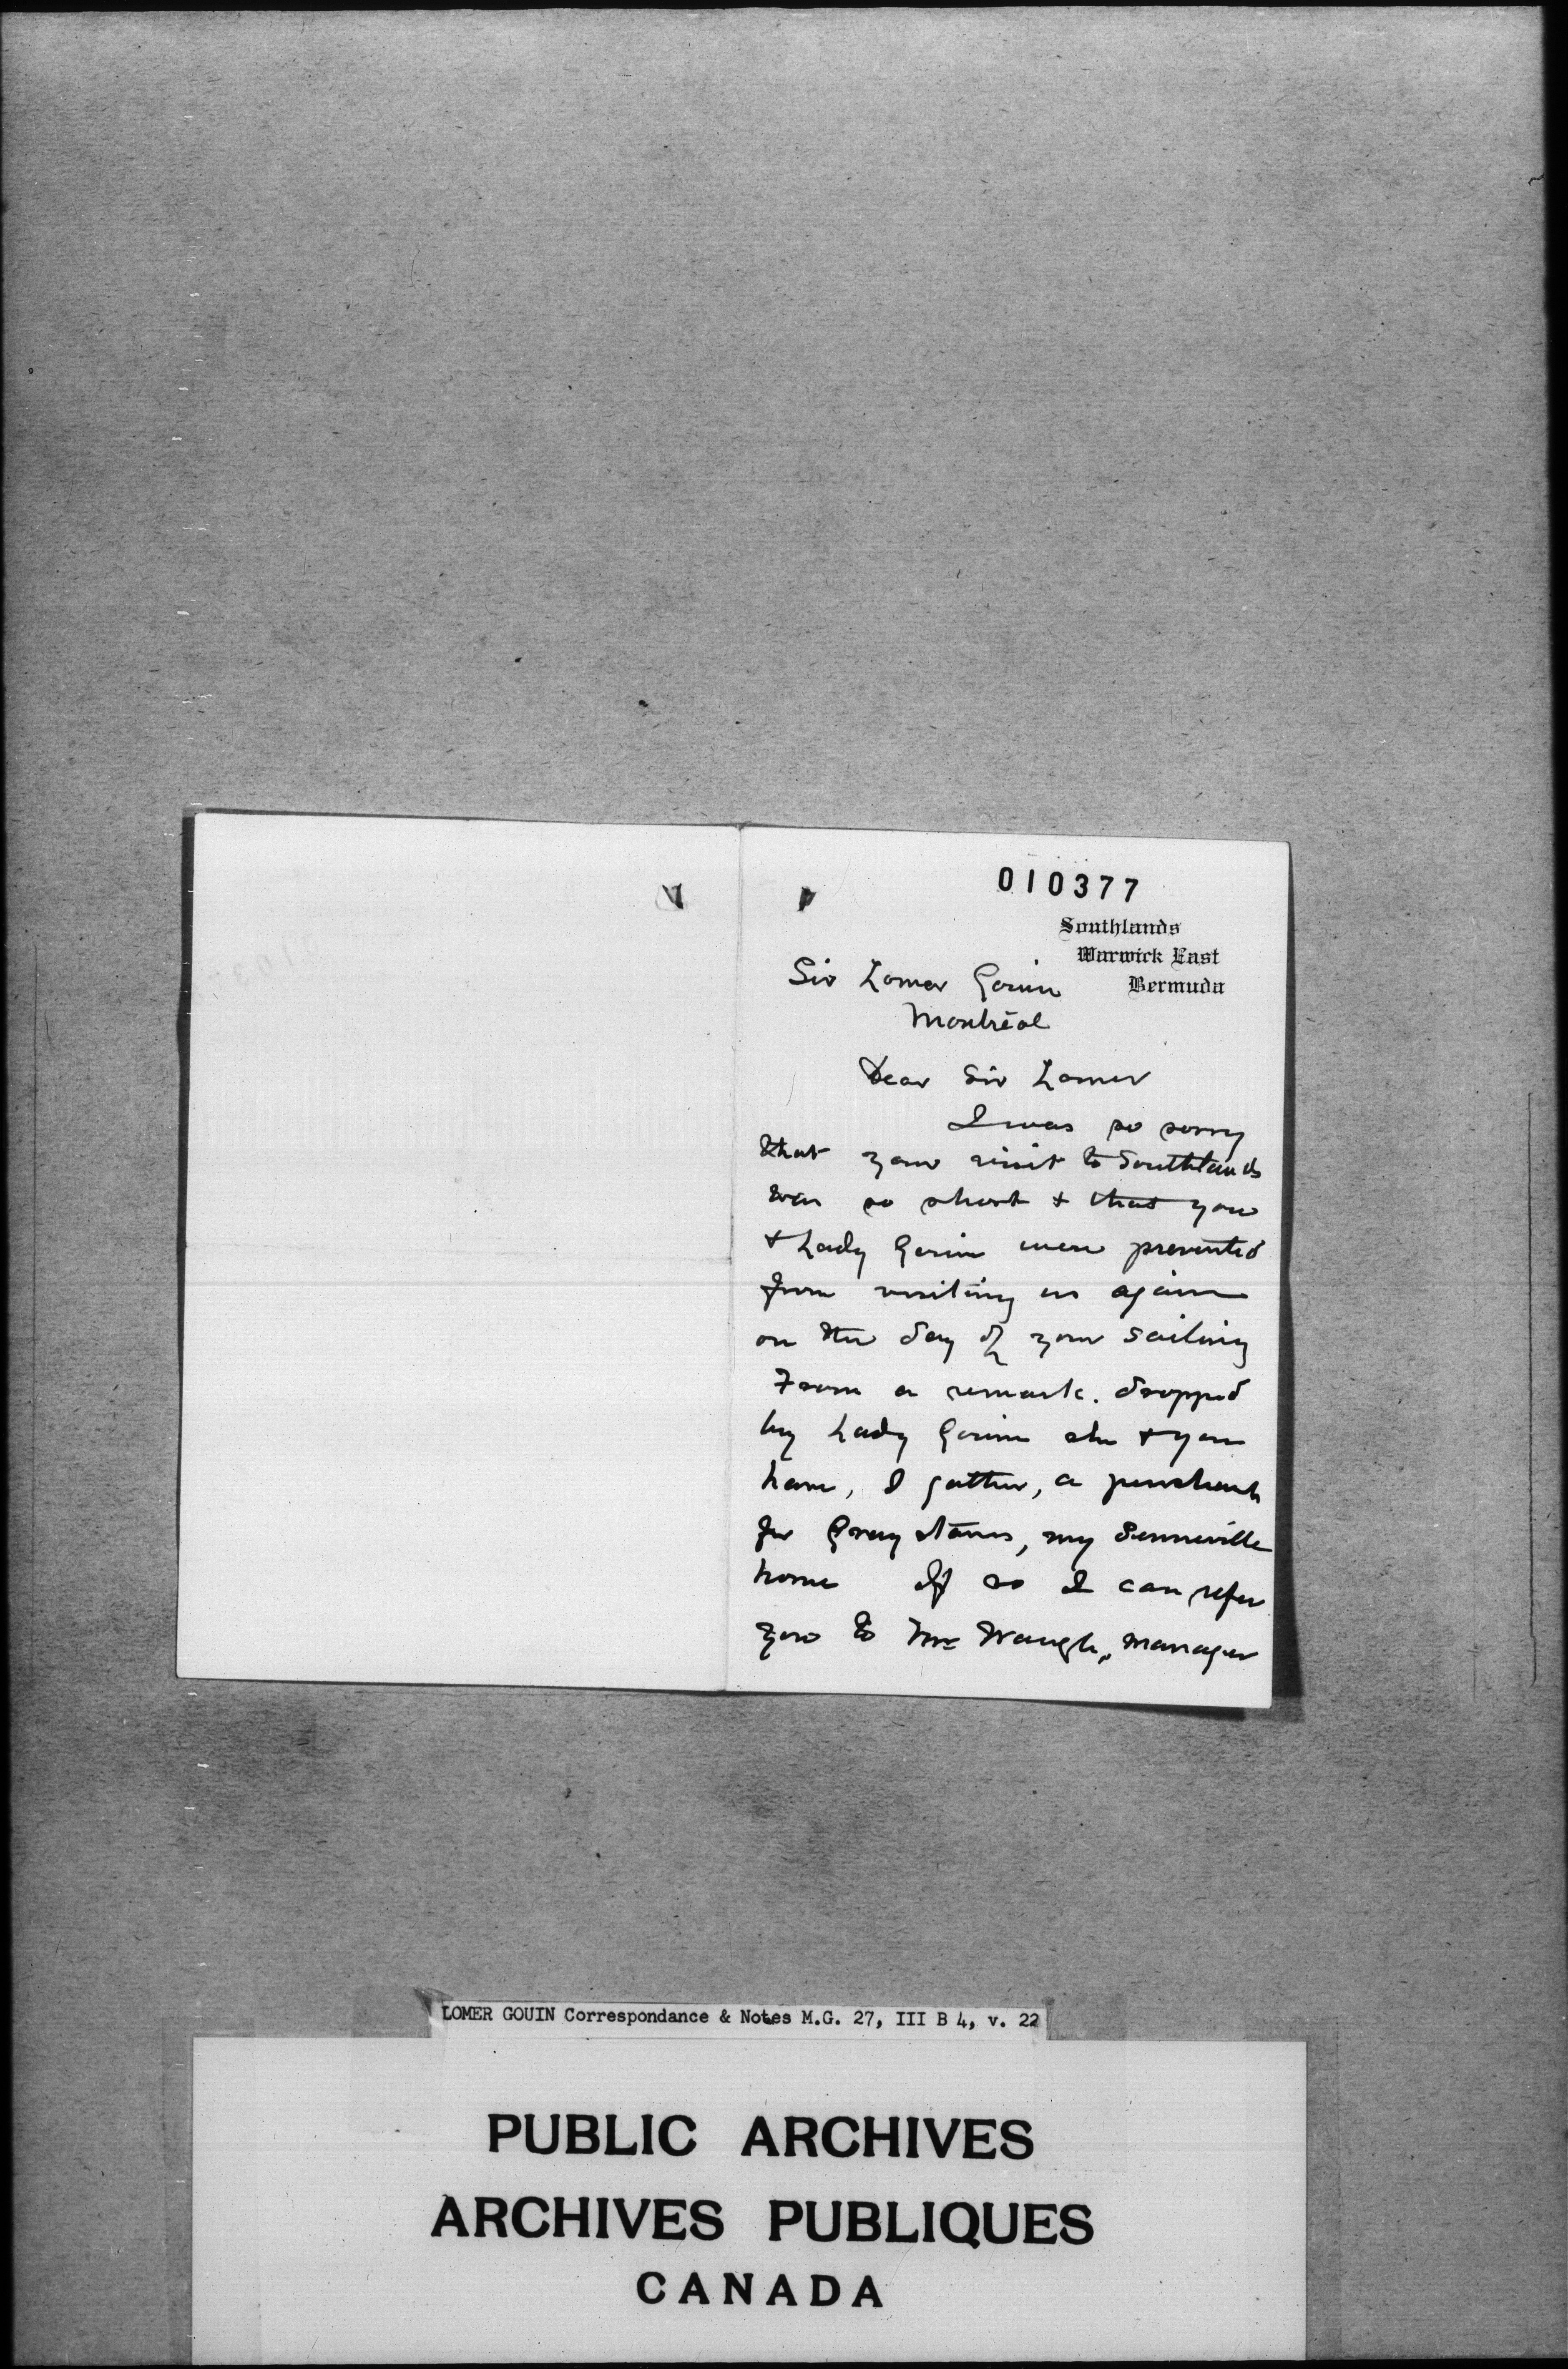 010377
Southlands
Warwick East
Bermuda
Sir Lomer Gouin
Montréal
Dear Sir Lomer
I was so sorry
that your visit to Southlands
was so short & that you
& Lady Gouin were prevented
from visiting us again
on the day of your sailing
From a remark. dropped
by Lady Gouin she & you
have, I gather, a penchant
for Graystones, my Senneville
home If so I can refer
you to Mr Waugh, manager
LOMER GOUIN Correspondance & Notes M.G. 27, III B 4, v. 22
PUBLIC ARCHIVES
ARCHIVES PUBLIQUES
CANADA